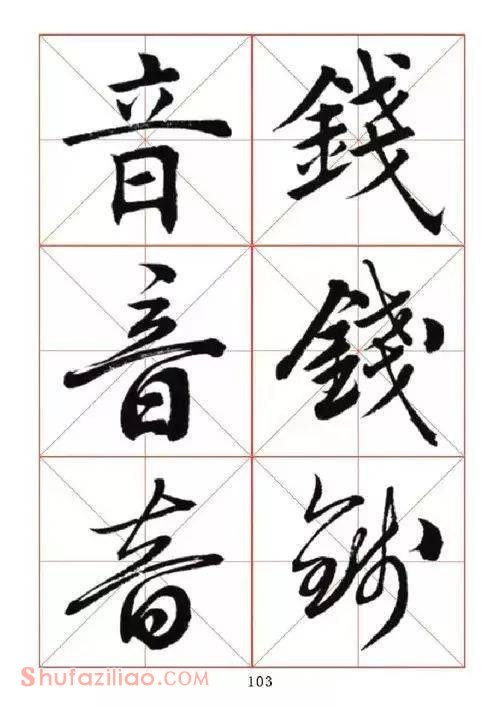 錢 音
錢 音
錢 音
Shufaziliao.com
103